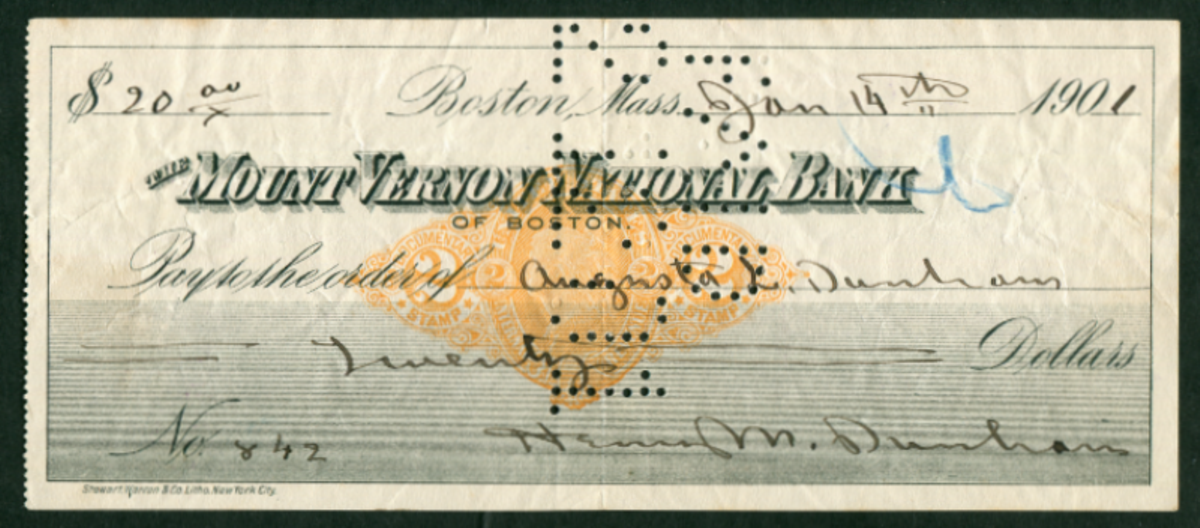 $ 20 00/x Boston, Mass. Jan 14th 1901
THE MOUNT VERNON NATIONAL BANK
OF BOSTON.
DOCUMENTARY DOCUMENTARY
Pay to the order of Augusta L. Dunham
2 2 2 2
STAMP STAMP
Twenty Dollars
No. 842 Henry M. Dunham
Stewart Warren & Co. Litho. New York City.